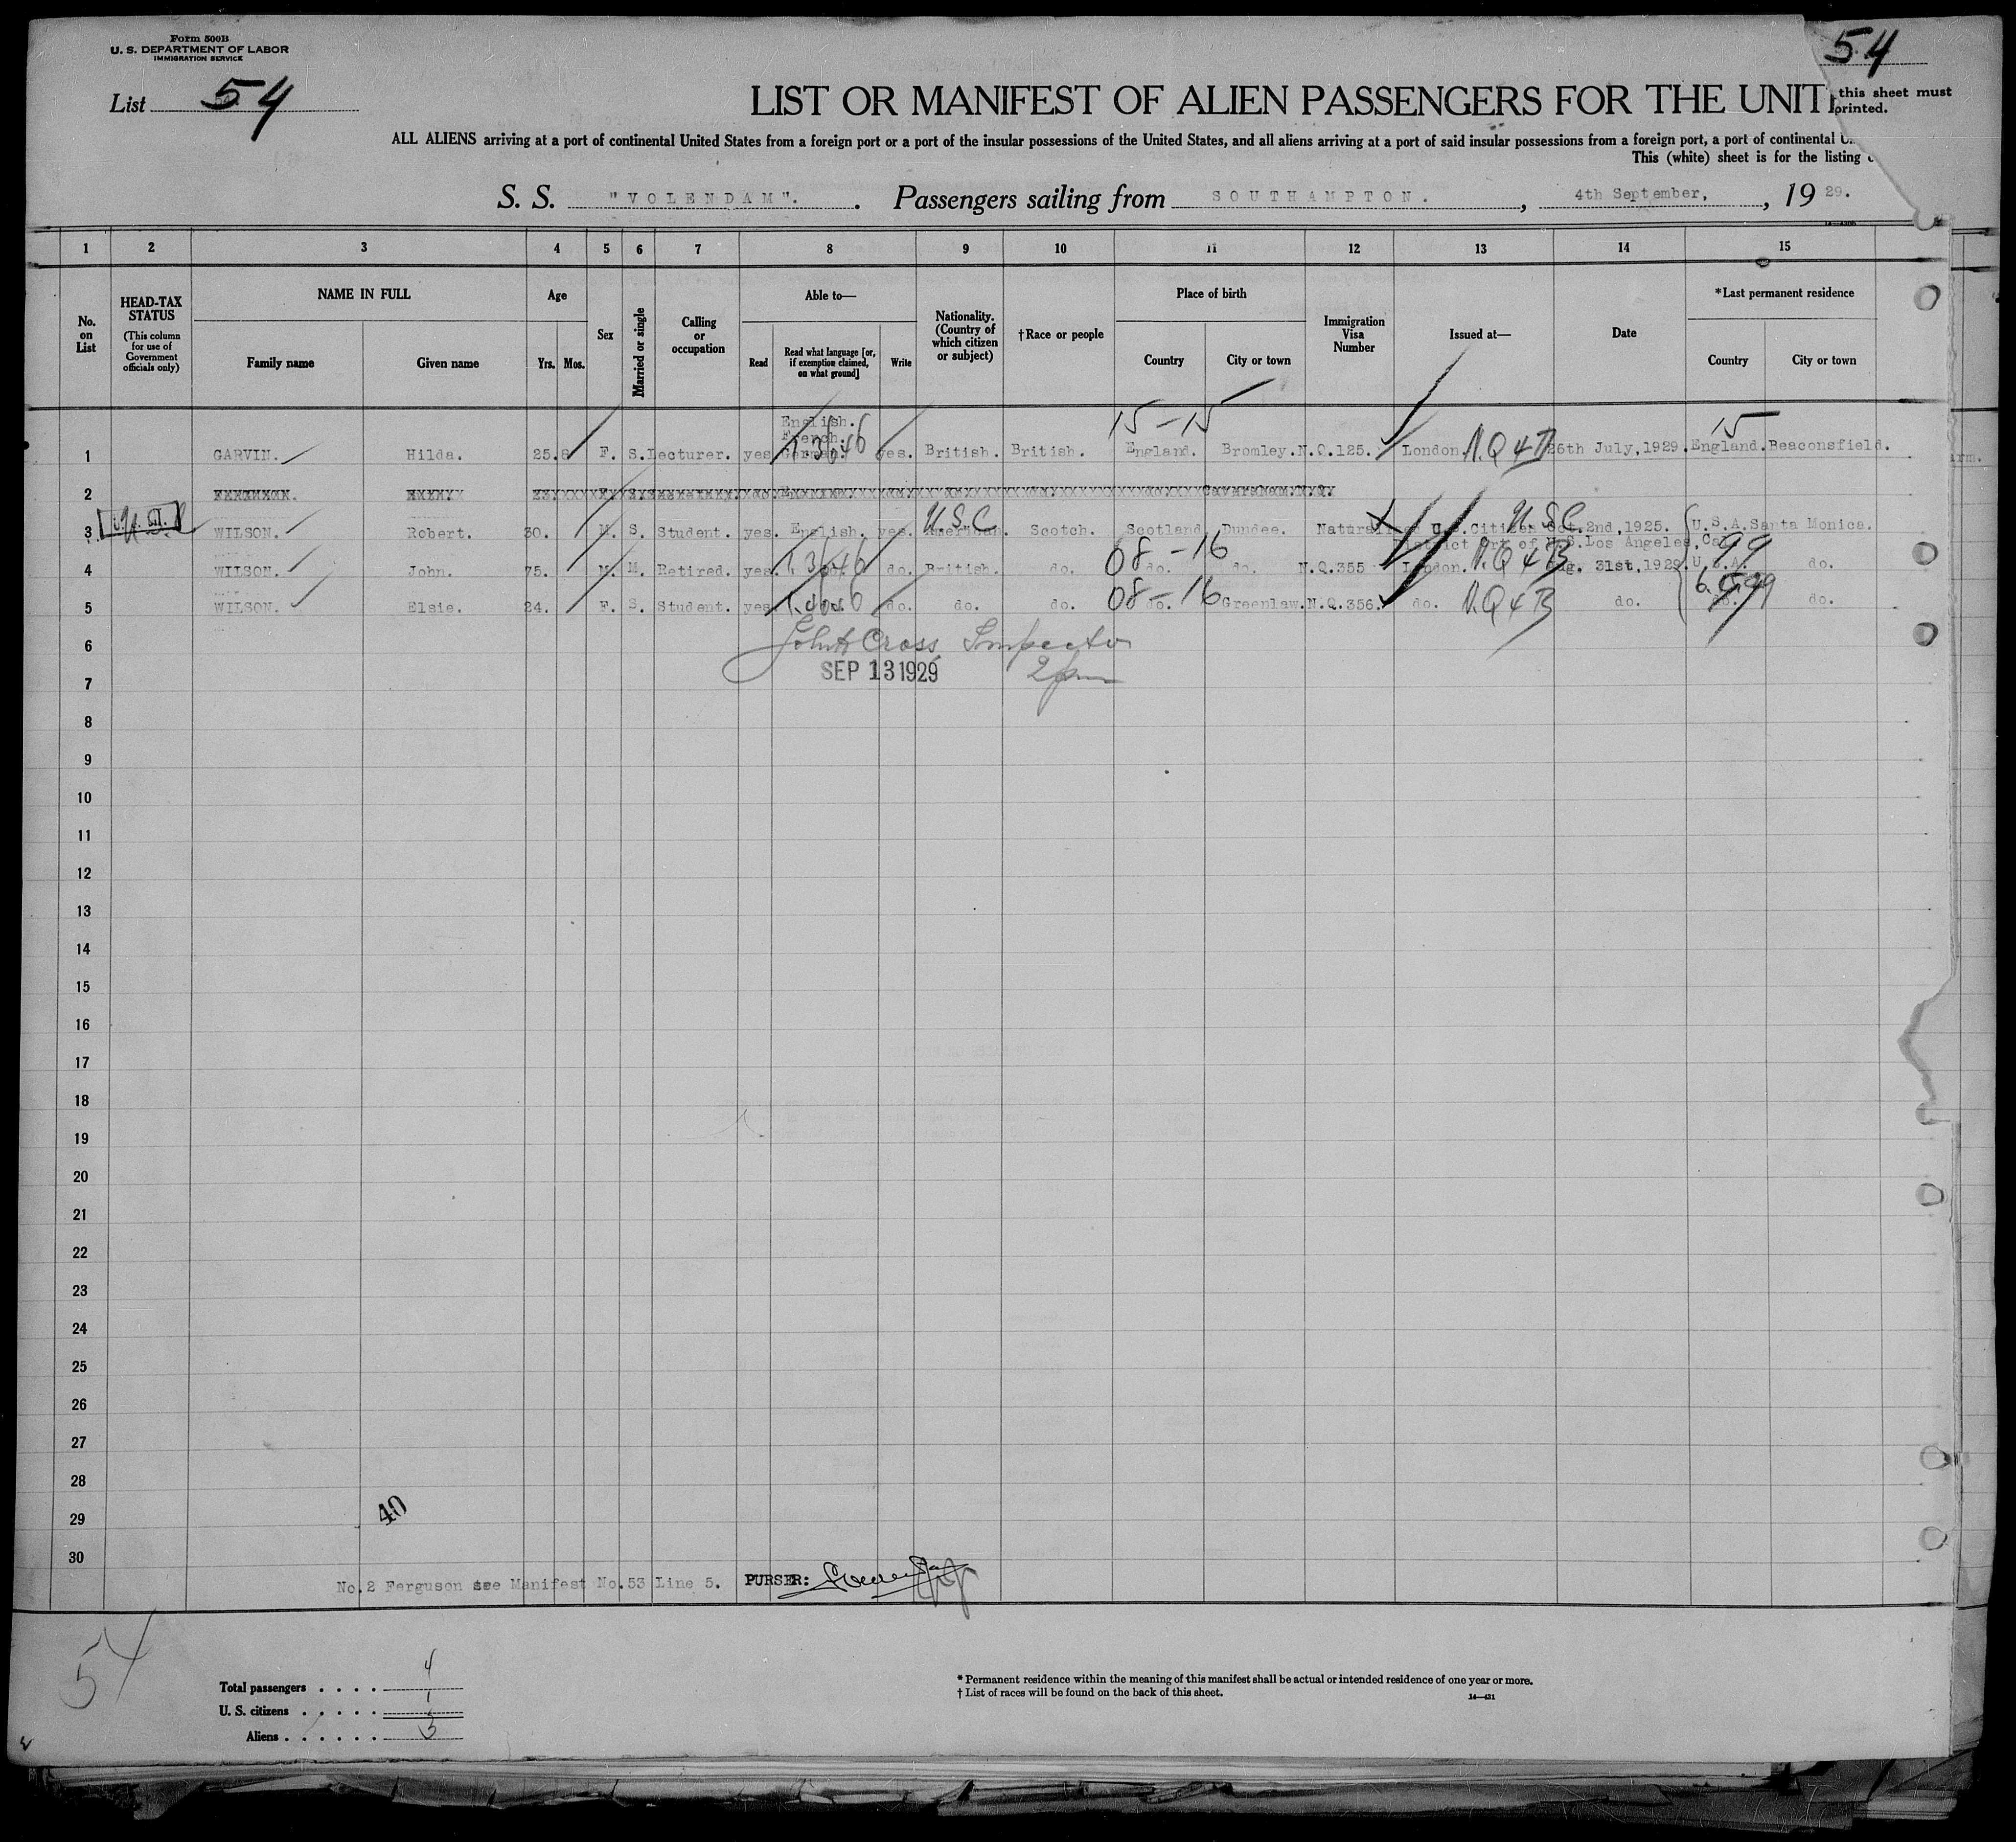 Form 500B
U. S. DEPARTMENT OF LABOR
IMMIGRATION SERVICE
List 54
54
LIST OR MANIFEST OF ALIEN PASSENGERS FOR THE UNIT
this sheet must
printed.
ALL ALIENS arriving at a port of continental United States from a foreign port or a port of the insular possessions of the United States, and all aliens arriving at a port of said insular possessions from a foreign port, a port of continental U.
This (white) sheet is for the listing
S. S. "VOLENDAM". Passengers sailing from SOUTHAMPTON. , 4th September, , 19 29.
1 2 3 4 5 6 7 8 9 10 11 12 13 14 15
No. on List
HEAD-TAX STATUS
(This column for use of Government officials only)
NAME IN FULL
Family name Given name
Age
Yrs. Mos.
Sex
Married or single
Calling or occupation
Able to—
Read
Read what language [or, if exemption claimed, on what ground]
Write
Nationality. (Country of which citizen or subject)
†Race or people
Place of birth
Country City or town
Immigration Visa Number
Issued at—
Date
*Last permanent residence
Country City or town
15 – 15 15
English.
French.
1 GARVIN. Hilda. 25. 8 F. S. Lecturer. yes German. yes. British. British. England. Bromley. N.Q.125. London. N.Q 4 B 26th July, 1929. England. Beaconsfield.
1.3646
2
3 WILSON. Robert. 30. M. S. Student. yes. English. yes. American. U.S.C Scotch. Scotland Dundee. U.S. Citizen U.S.C. Oct. 2nd, 1925. U.S.A. Santa Monica.
District Crt of U.S. Los Angeles, Cal.
08 – 16 99
4 WILSON. John. 75. M. M. Retired. yes. 1.3646 do. British. do. do. do. N.Q.355 London. N.Q 4 B Aug. 31st, 1929. U.S.A. do.
08 – 16
5 WILSON. Elsie. 24. F. S. Student. yes do. do. do. do. Greenlaw. N.Q.356. do. N.Q 4 B do. do. do.
6 John H Cross, Inspector
7 SEP 13 1929 2 pm
8
9
10
11
12
13
14
15
16
17
18
19
20
21
22
23
24
25
26
27
28
29 40
30
No.2 Ferguson see Manifest No.53 Line 5. PURSER:
54
Total passengers . . . . 4
U. S. citizens . . . . . 1
Aliens . . . . . . 3
* Permanent residence within the meaning of this manifest shall be actual or intended residence of one year or more.
† List of races will be found on the back of this sheet.
14—431